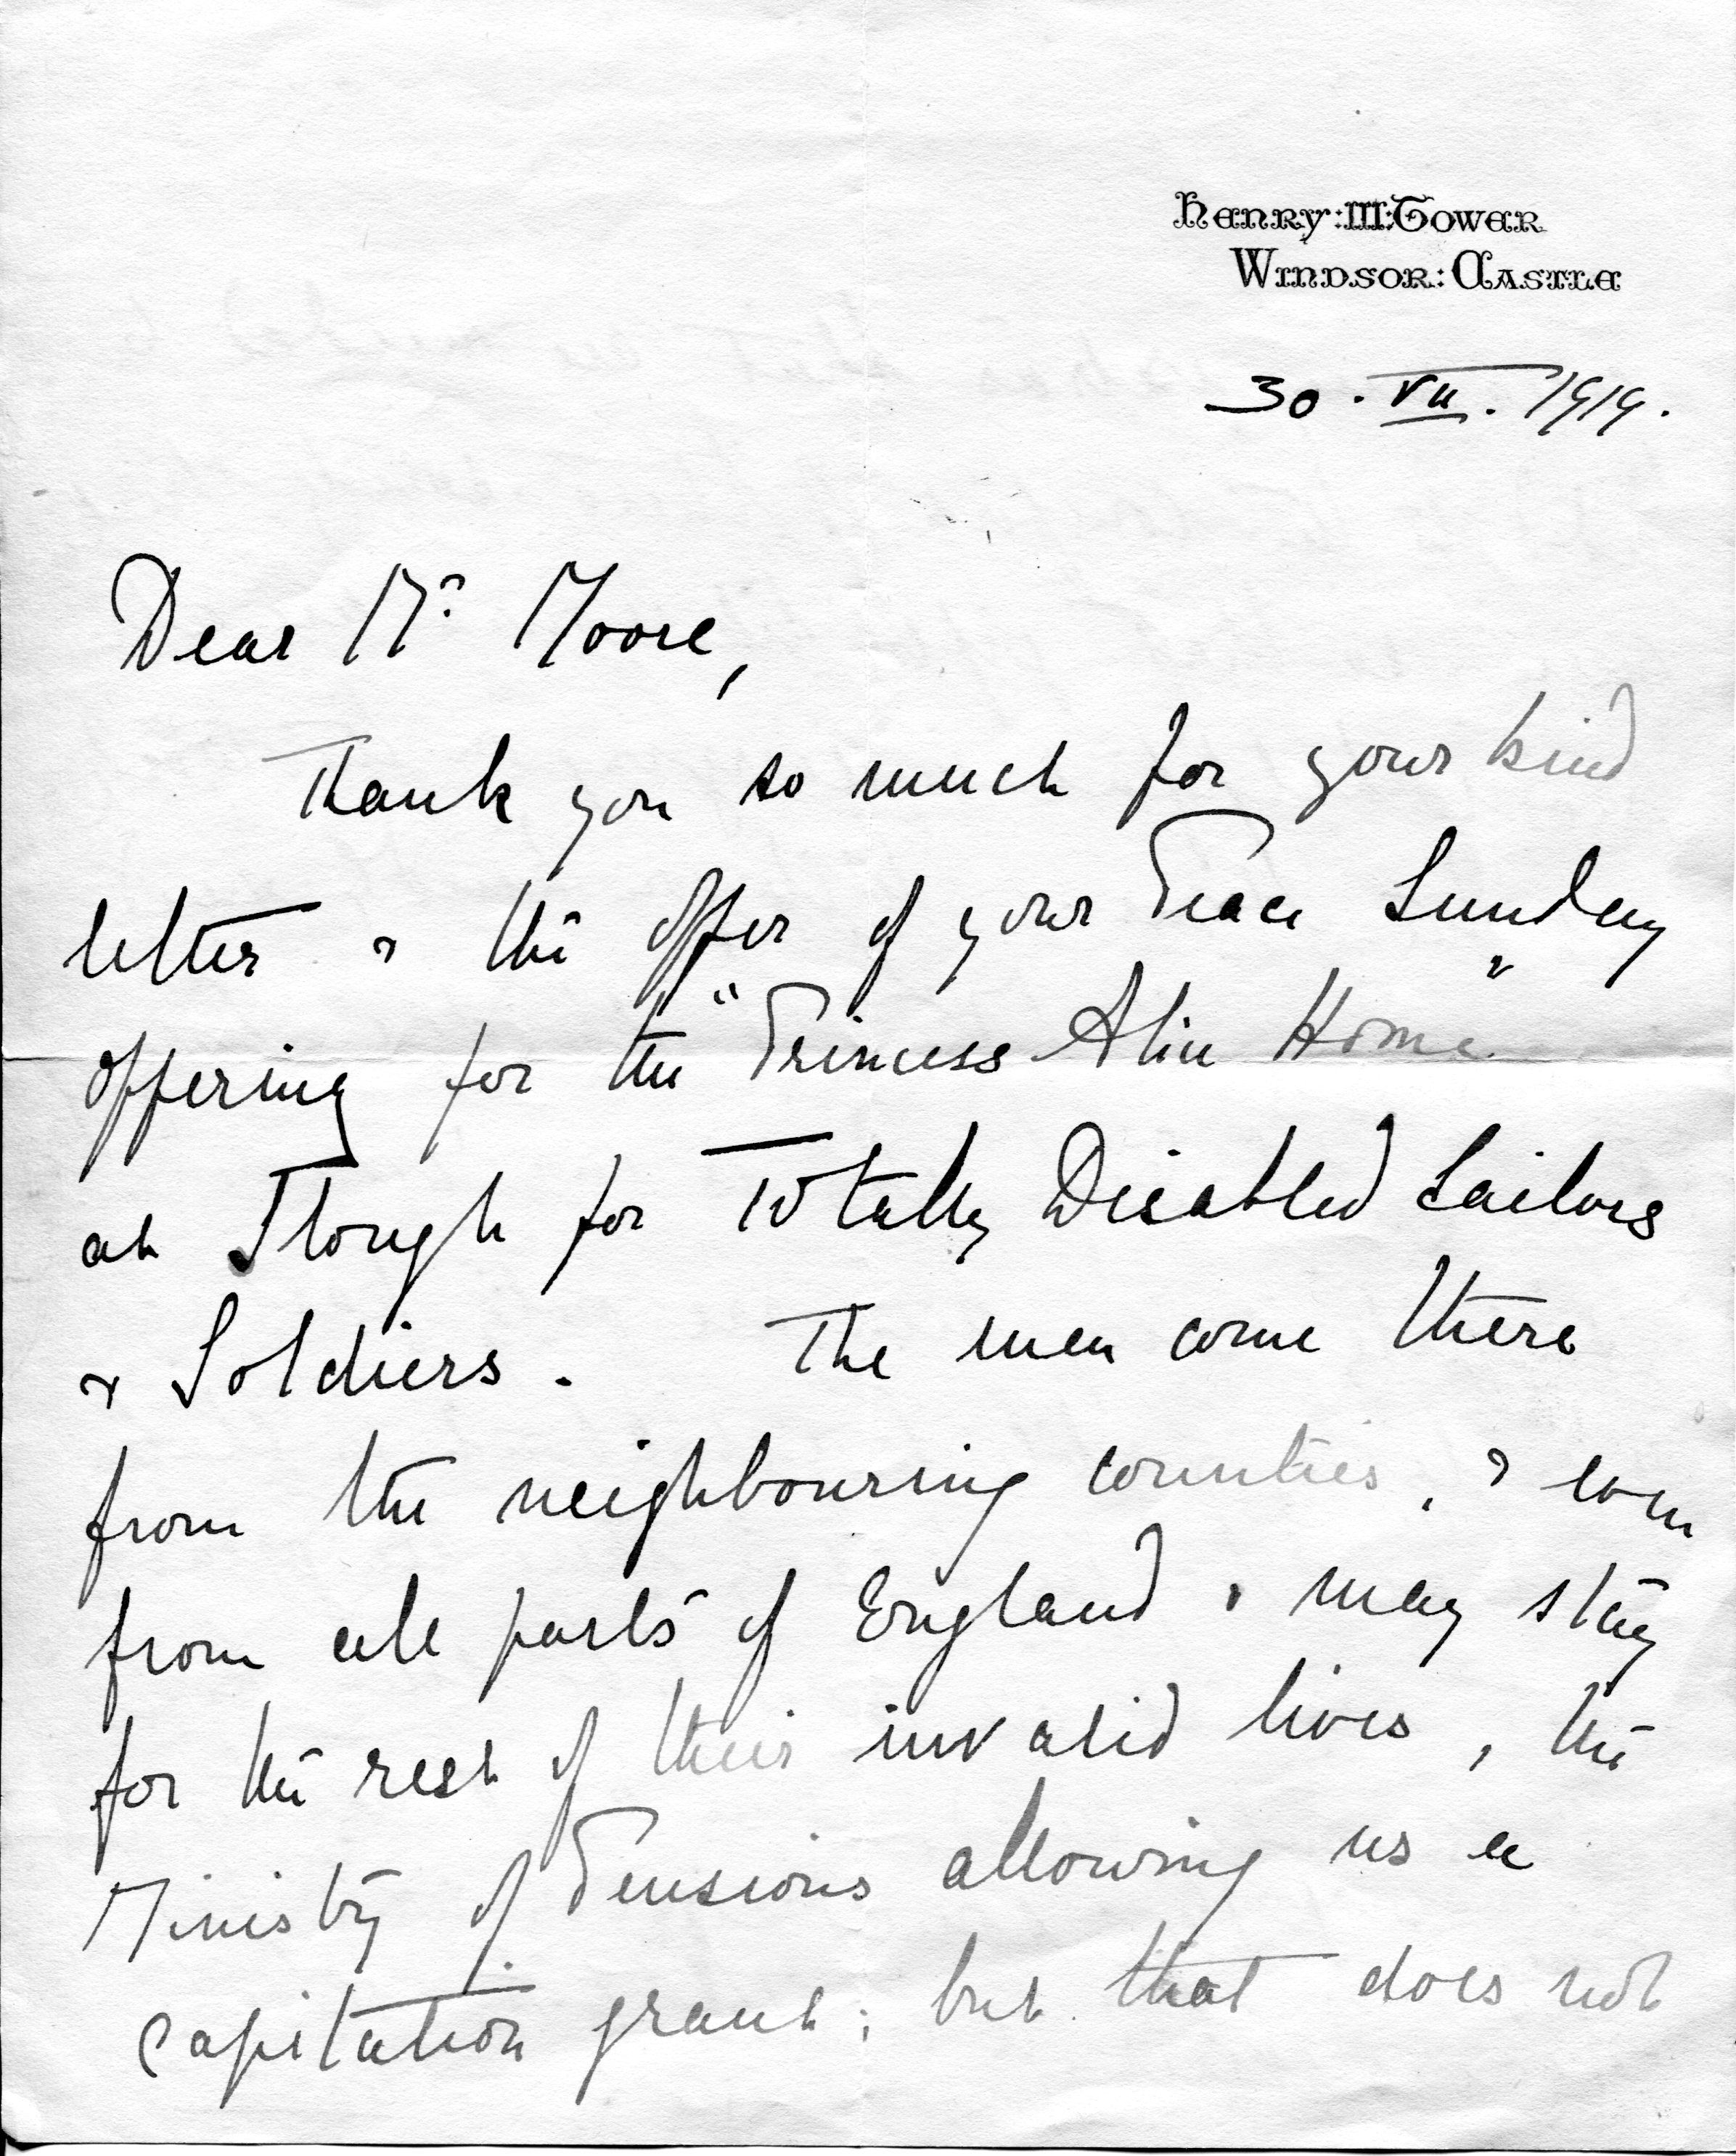 Henry:III:Tower
Windsor:Castle
30.VII.1919.
Dear Mr Moore,
Thank you so much for your kind
letter & the offer of your Peace Sunday
offering for the "Princess Alice Home"
at Slough for Totally Disabled Sailors
& Soldiers. The men come there
from the neighbouring counties, & even
from all parts of England & may stay
for the rest of their invalid lives, the
Ministry of Pensions allowing us a
capitation grant; but that does not